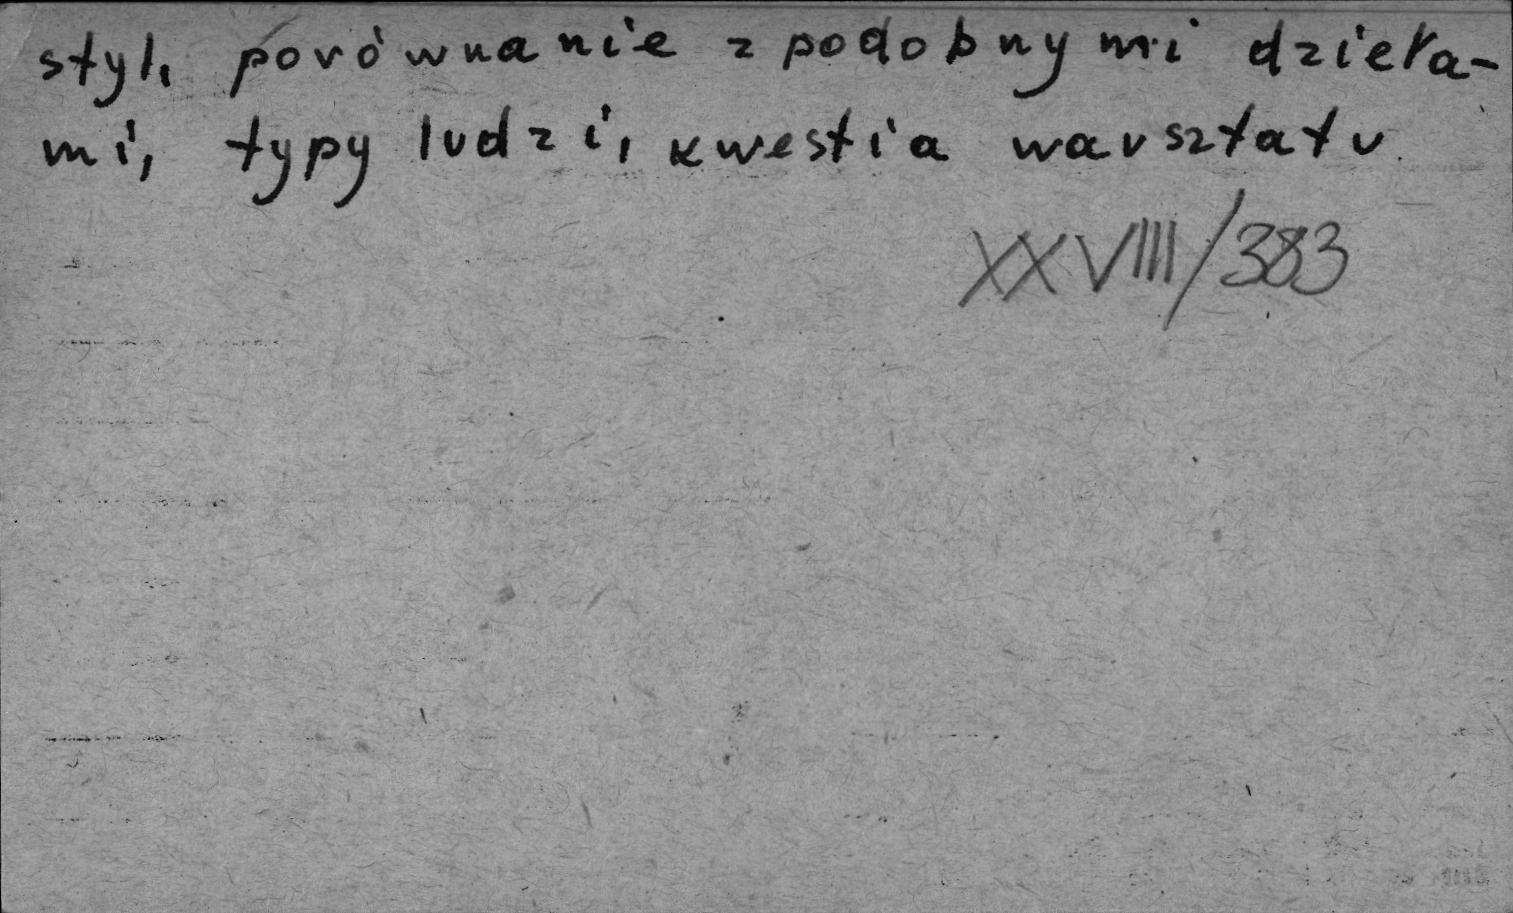 styl, porównanie z podobnymi dzieła-
mi, typy ludzi, kwestia warsztatu.
XXVIII/383